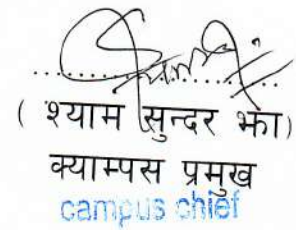 ( श्याम सुन्दर झा)
क्याम्पस प्रमुख
campus chief